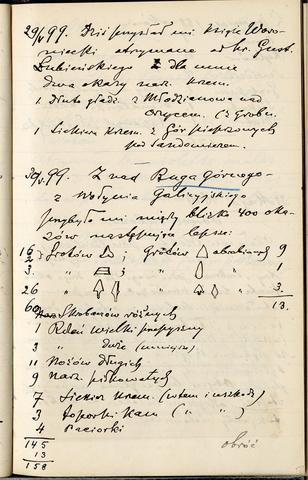 29/IV 99. Dziś przysłał mi książę Woro-
niecki otrzymane od hr. Gust.
Łubieńskiego dla mnie
dwa okazy narz. krzem.
1 Dłuto gładz. z Młodzianowa nad
Orzycem.
1 Siekiera krzem. z Gór pieprzowych
pod Sandomierzem.
99. Z nad Buga Górnego
z Wołynia Galicyjskiego
przybyło mi między blisko 400 oka-
zów następujące lepsze:
16 Grotów ; Grotów 9
3 " ; " 1
26 " " 3.
13.
60 Skrobaczów różnych
1 Rdzeń wielki
3 " dwie (mniejsze)
11 Nożów długich
9 Narz. piłkowatych
7 Siekier krzem. (w tem i uszkodz)
3 Toporki kam ( " " )
4 Paciorki
145
13
158
obróć